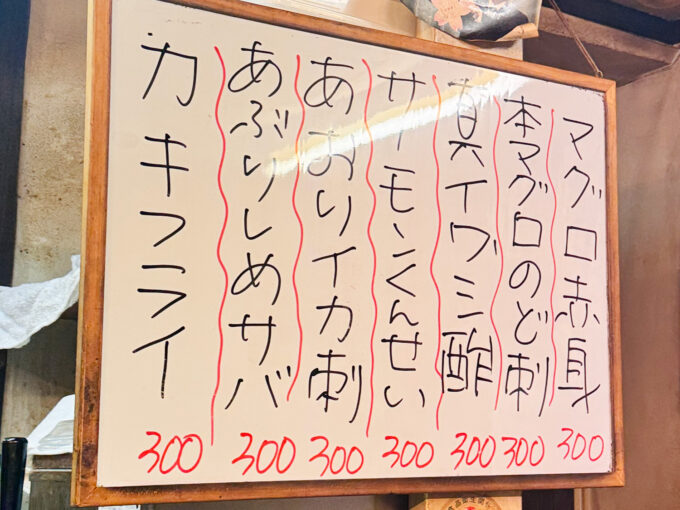 マグロ赤身 300
本マグロのど刺 300
真イワシ酢 300
サーモンくんせい 300
あおりイカ刺 300
あぶりしめサバ 300
カキフライ 300